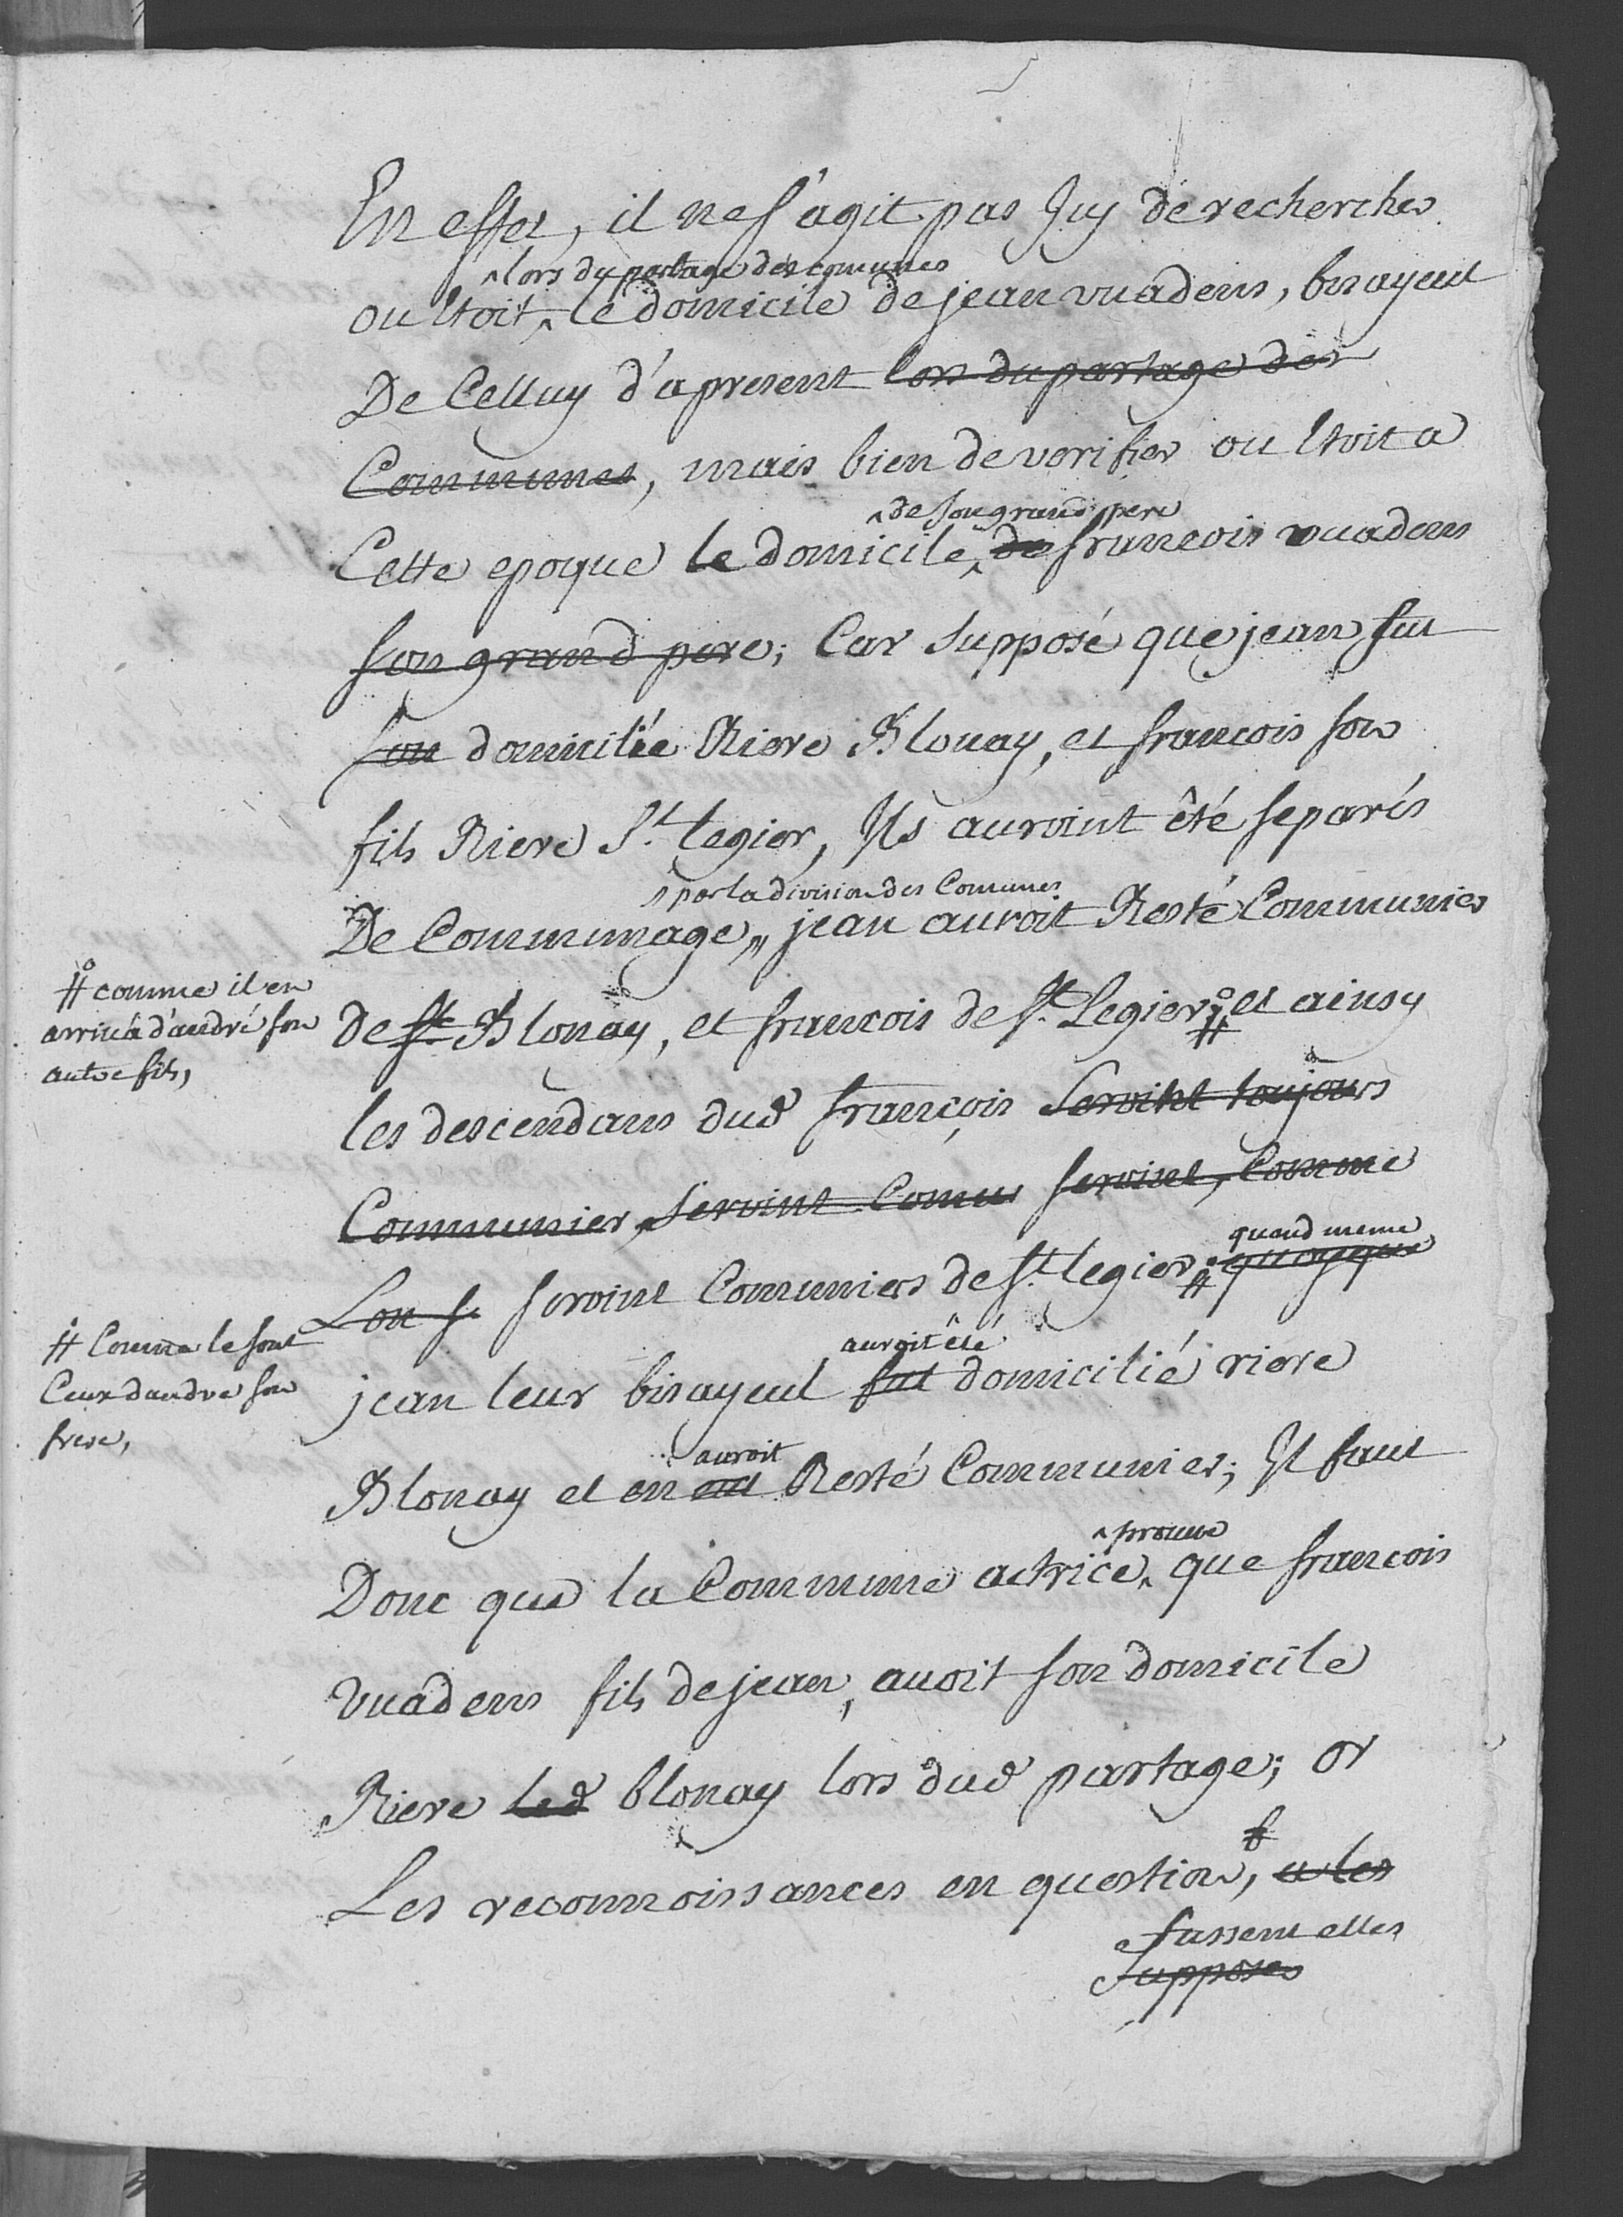 En effet, il ne s'agit pas Jcy de rechercher
^lors du partage des comunes
ou étoit ^ le domicile de jean vuadens, bisayeul
De Celluy d'apresent lors du partage des
Communes, mais bien de verifier ou étoit a
^de son grand pere
Cette epoque le domicile ^ de francois vuadens
son grand pere; Car supposé que jean fut
son domicilié Riere Blonay, et francois son
fils Riere St. legier, Ils auroint été separés
^par la division des Comunes
De Communage, jean auroit Resté Communier
De St Blonay, et francois de St. Legier; # et ainsy
# comme il en
arriva d'andré son
autre fils,
les descendans dud françois seroint toujours
Communier, seroint Comu seroint, Comme
quand meme
Lon s. seroint Comuniers de St. legier; # quoyque
# Comme le sont
Ceux dandre son
frere,
auroit été
jean leur bisayeul fut domicilié riere
auroit
Blonay et en eut Resté Communier; Il faut
^prouve
Donc que la Commune actrice ^ que francois
vuadens fils de jean, avoit son domicile
Riere led blonay lors dud partage; or
Les reconnoissances en question, a les
fussent elles
supposer